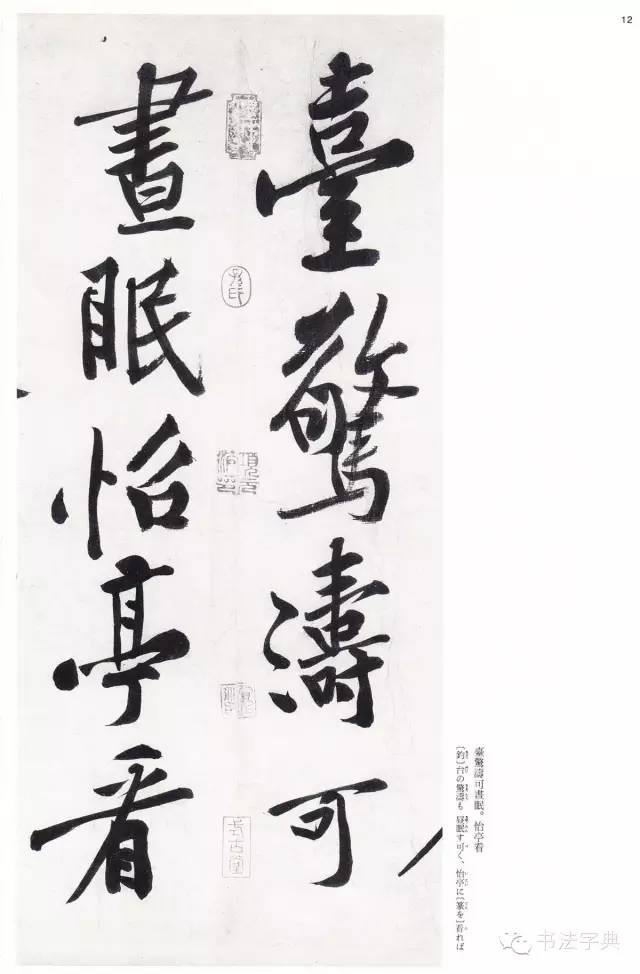 12
臺驚濤可
晝眠怡亭看
臺驚濤可晝眠。怡亭看
〔釣〕台の驚濤も昼眠す可く、怡亭に〔篆を〕看れば
书法字典